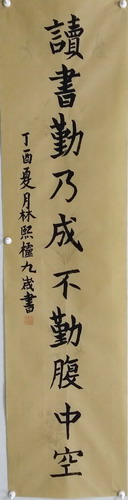 讀書勤乃成不勤腹中空
丁酉夏月林熙橦九歲書